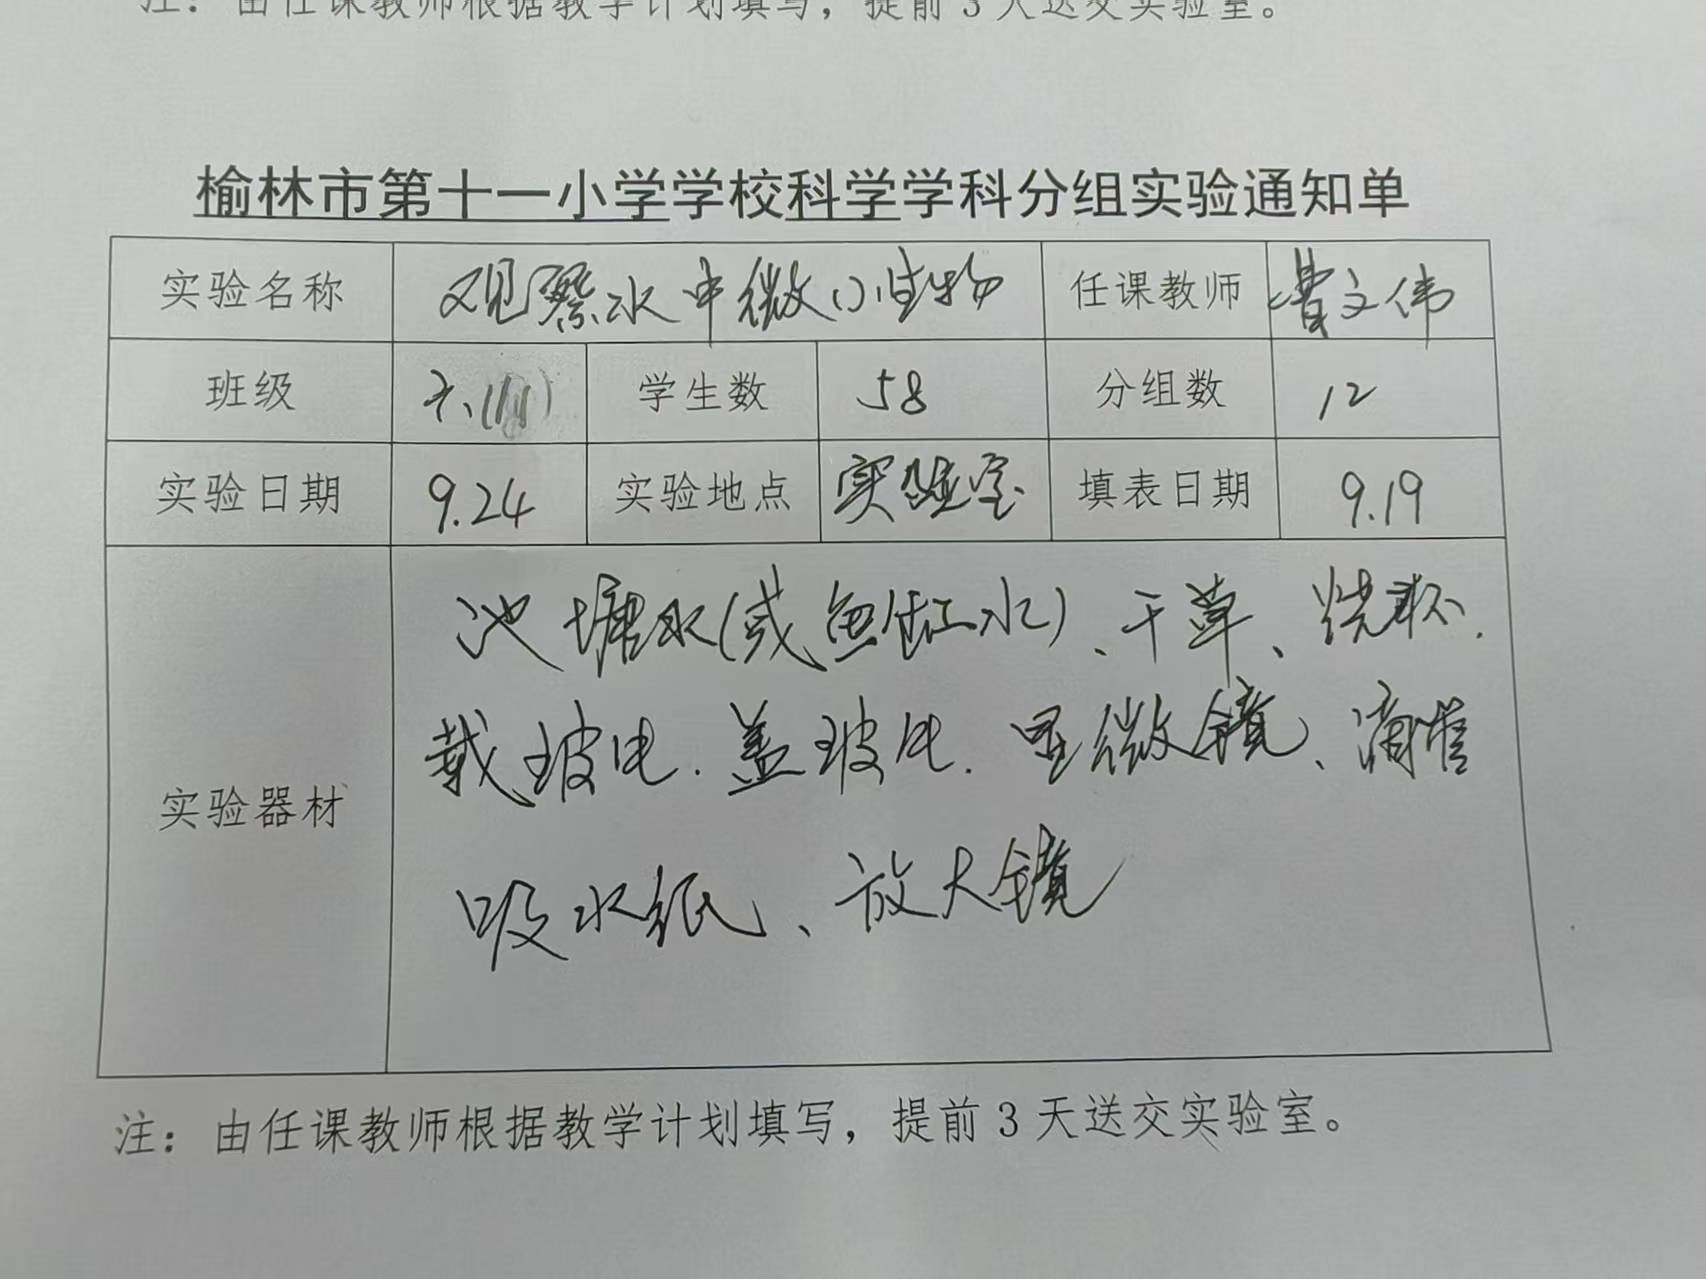 注：由任课教师根据教学计划填写，提前3天送交实验室。
榆林市第十一小学学校科学学科分组实验通知单
实验名称 观察水中微小生物 任课教师 曹文伟
班级 六 学生数 58 分组数 12
实验日期 9.24 实验地点 实验室 填表日期 9.19
池塘水(或鱼缸水)、干草、烧杯.
实验器材 载玻片.盖玻片.显微镜、滴管
吸水纸、放大镜
注：由任课教师根据教学计划填写，提前3天送交实验室。